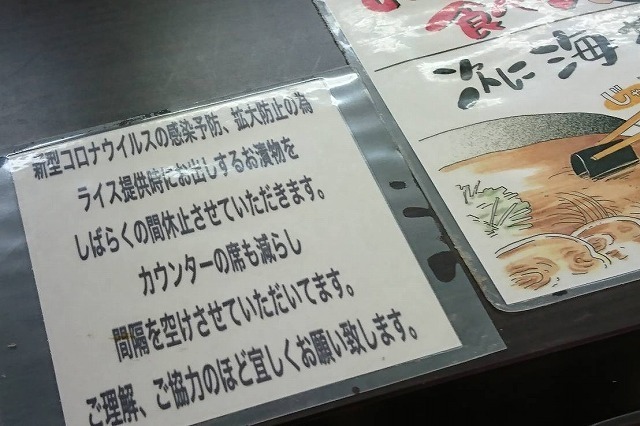 新型コロナウイルスの感染予防、拡大防止の為
ライス提供時にお出しするお漬物を
しばらくの間休止させていただきます。
カウンターの席も減らし
間隔を空けさせていただいてます。
ご理解、ご協力のほど宜しくお願い致します。
食べ
次に海